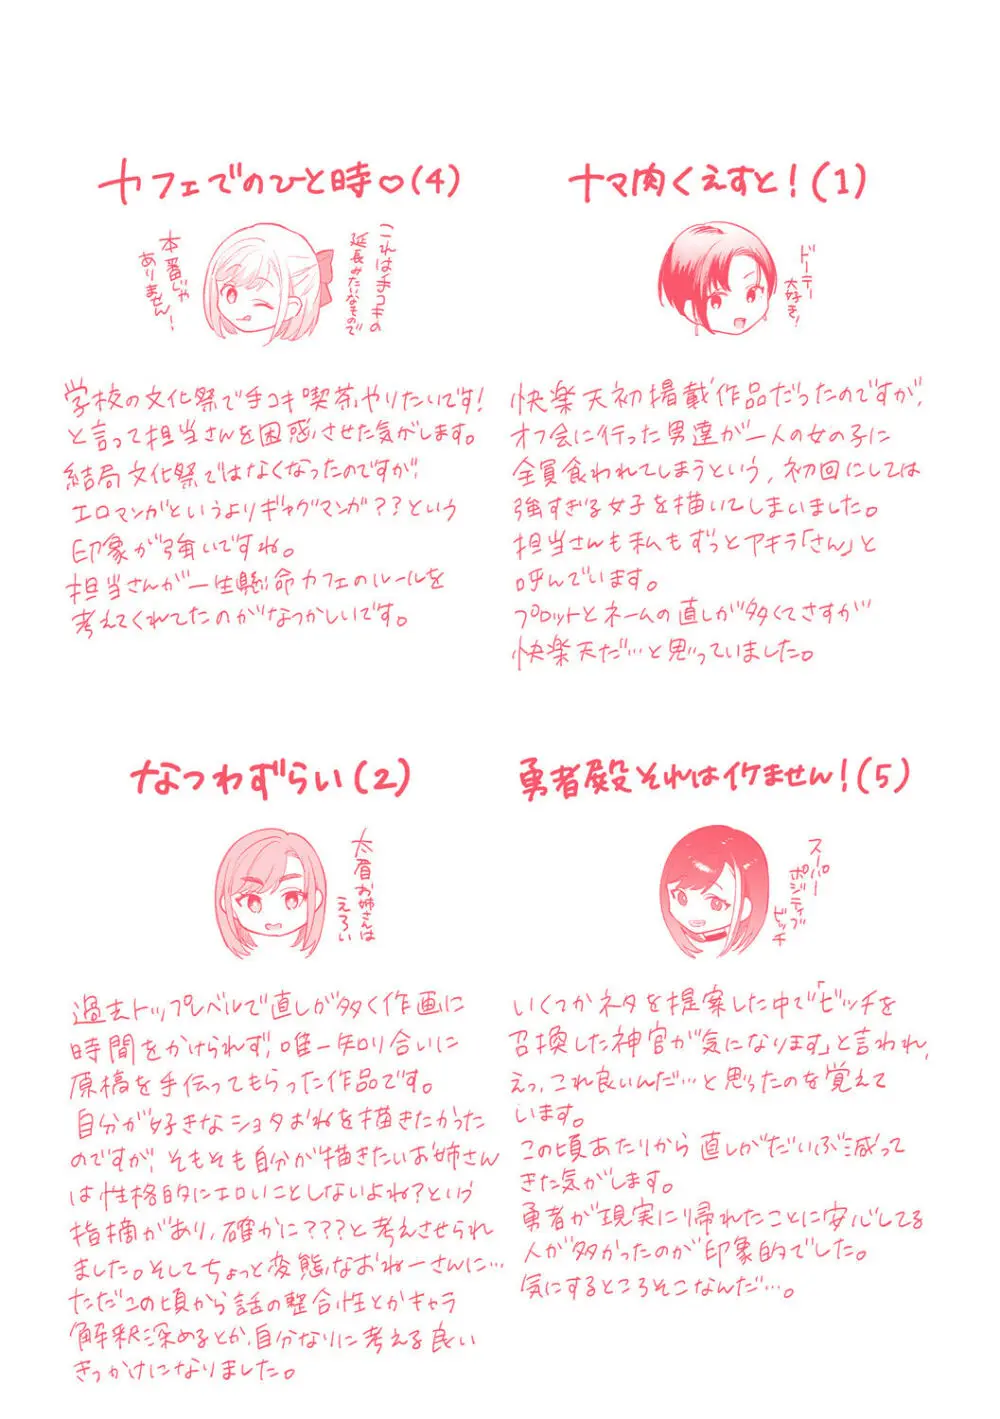 カフェでのひと時♡(4)
これは手コキの
延長みたいなもので
本番じゃ
ありません!
学校の文化祭で手コキ喫茶やりたいです!
と言って担当さんを困惑させた気がします。
結局文化祭ではなくなったのですが、
エロマンガというよりギャグマンガ??という
印象が強いですね。
担当さんが一生懸命カフェのルールを
考えてくれてたのがなつかしいです。
ナマ肉くえすと!(1)
ドーテー
大好き!
快楽天初掲載作品だったのですが、
オフ会に行った男達が一人の女の子に
全員食われてしまうという、初回にしては
強すぎる女子を描いてしまいました。
担当さんも私もずっとアキラ「さん」と
呼んでいます。
プロットとネームの直しが多くてさすが
快楽天だ…と思っていました。
なつわずらい(2)
太眉お姉さんは
えろい
過去トップレベルで直しが多く作画に
時間をかけられず、唯一知り合いに
原稿を手伝ってもらった作品です。
自分が好きなショタおねを描きたかった
のですが、そもそも自分が描きたいお姉さん
は性格的にエロいことしないよね?という
指摘があり、確かに???と考えさせられ
ました。そしてちょっと変態なおねーさんに…
ただこの頃から話の整合性とかキャラ
解釈深めるとか、自分なりに考える良い
きっかけになりました。
勇者殿それはイケません!(5)
スーパー
ポジティブ
ビッチ
いくつかネタを提案した中で「ビッチを
召換した神官が気になります」と言われ、
えっ、これ良いんだ…と思ったのを覚えて
います。
この頃あたりから直しがだいぶ減って
きた気がします。
勇者が現実に帰れたことに安心してる
人が多かったのが印象的でした。
気にするところそこなんだ…。